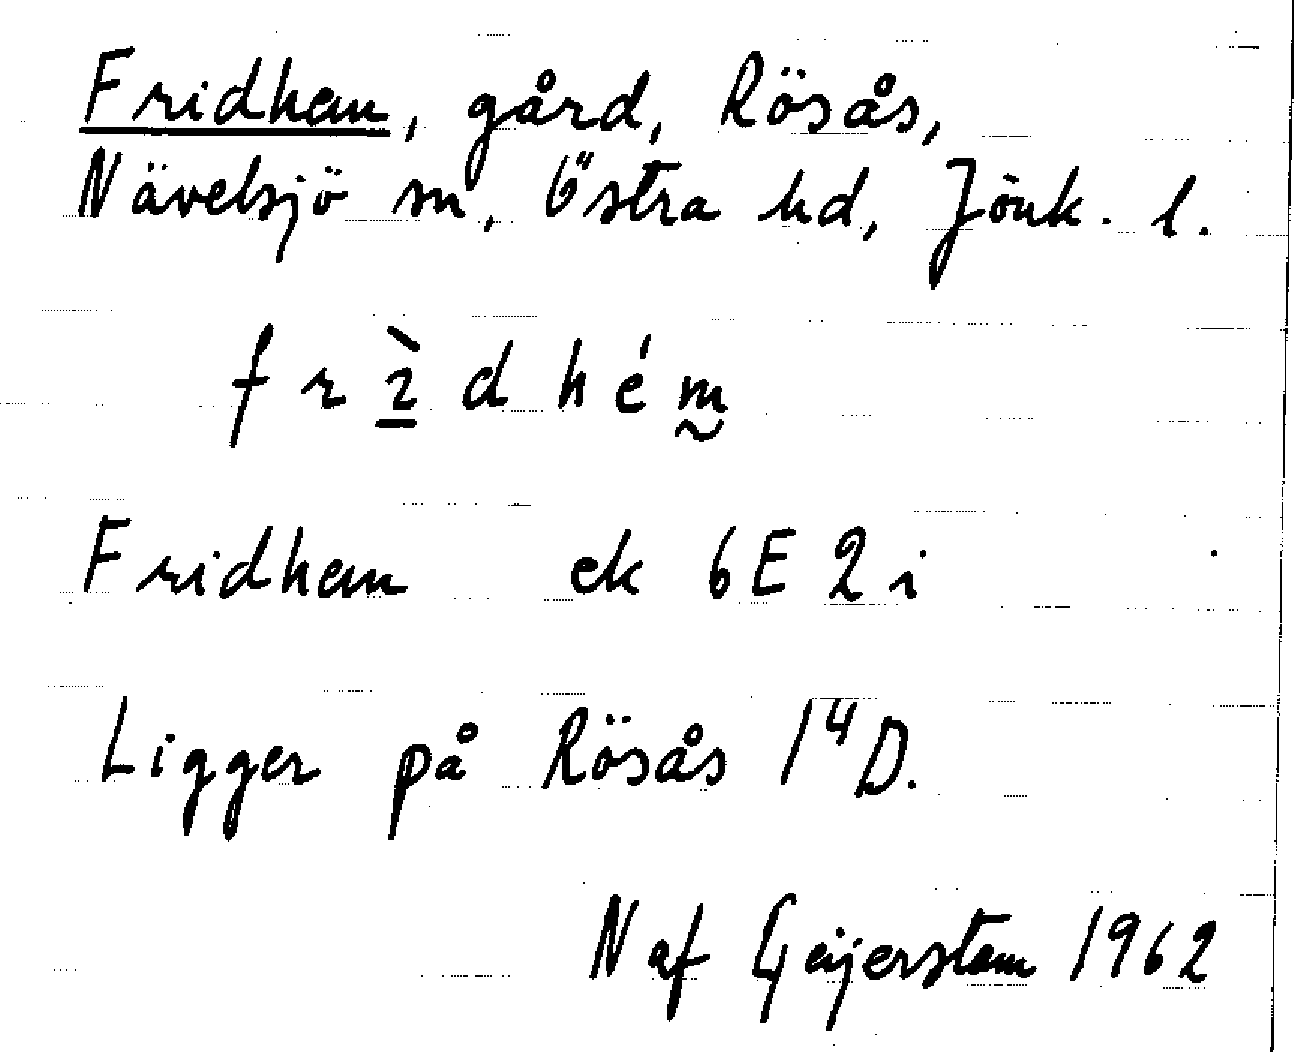 Fridhem, gård, Rösås,
Nävelsjö sn, Östra hd, Jönk. l.
f r ì d h é m
Fridhem ek 6E 2 i
Ligger på Rösås 1⁴ D.
N af Geijerstam 1962